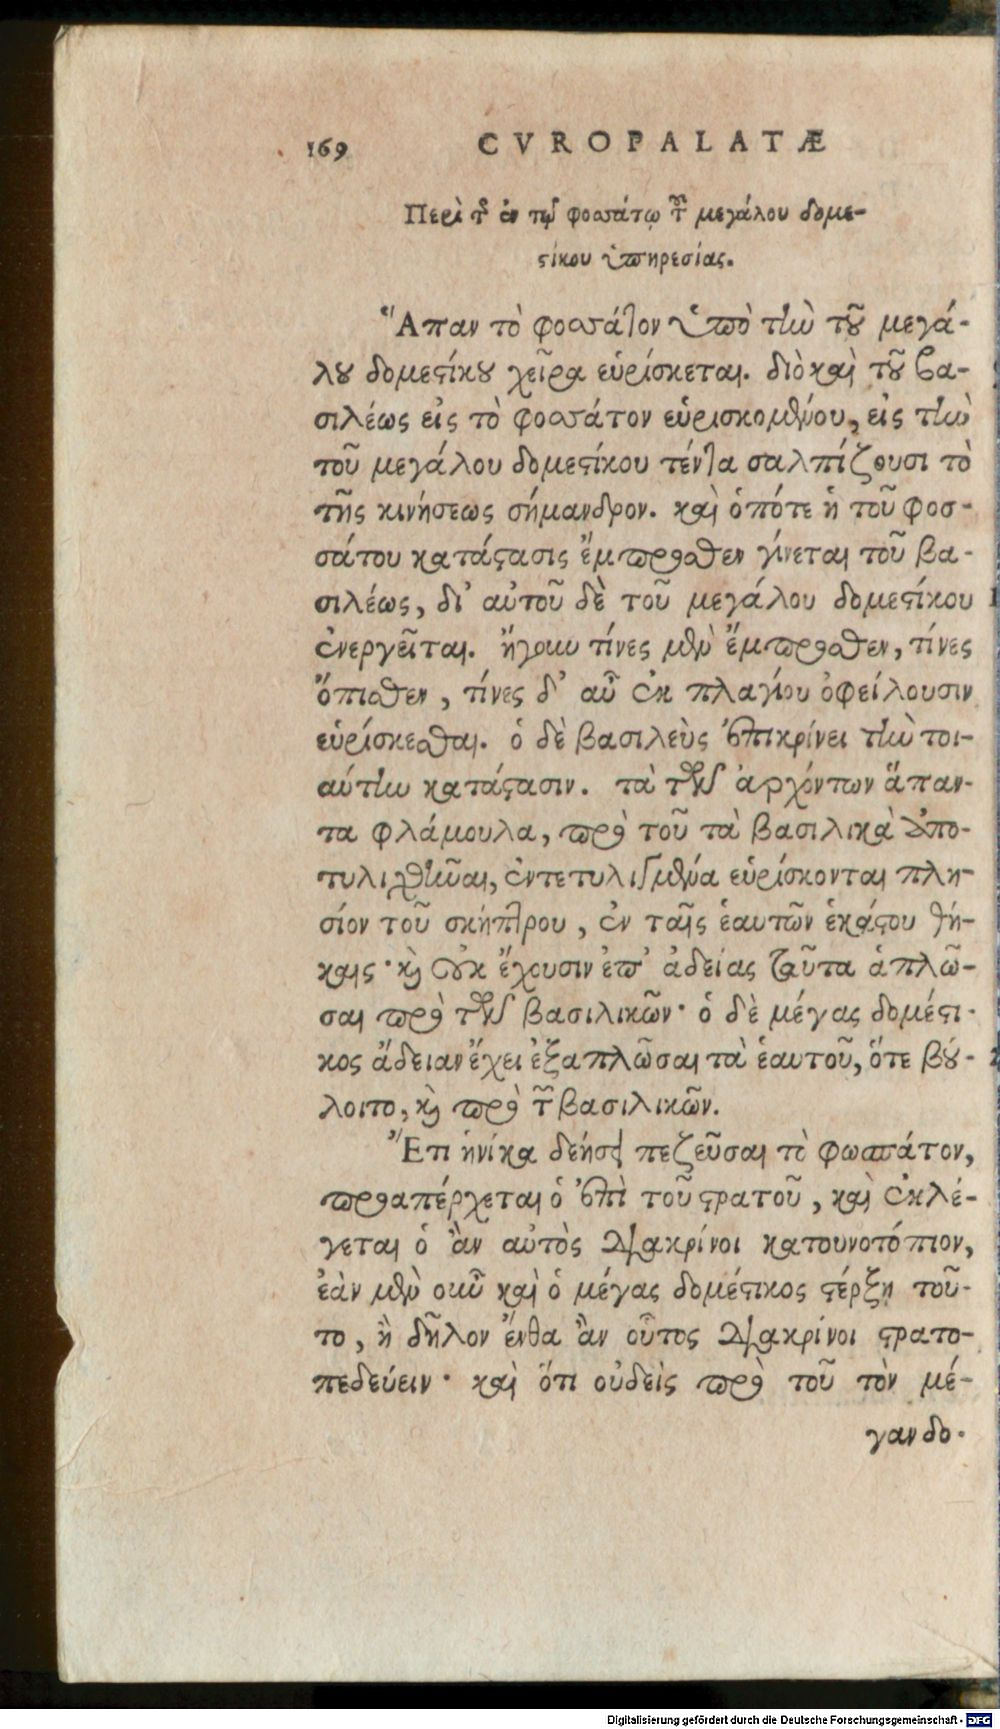 169 CVROPALATÆ
Περὶ τῆς ἐν τῷ φοσσάτῳ τοῦ μεγάλου δομε-
στίκου ὑπηρεσίας.
Ἅπαν τὸ φοσσάτον ὑπὸ τὴν τοῦ μεγά-
λου δομεστίκου χεῖρα εὑρίσκεται. διὸ καὶ τοῦ βα-
σιλέως εἰς τὸ φοσσάτον εὑρισκομένου, εἰς τὴν
τοῦ μεγάλου δομεστίκου τέντα σαλπίζουσι τὸ
τῆς κινήσεως σήμανδρον. καὶ ὁπότε ἡ τοῦ φοσ-
σάτου κατάστασις ἔμπροσθεν γίνεται τοῦ βα-
σιλέως, δι' αὐτοῦ δὲ τοῦ μεγάλου δομεστίκου
ἐνεργεῖται. ἤγουν τίνες μὲν ἔμπροσθεν, τίνες
ὄπισθεν, τίνες δ' αὖ ἐκ πλαγίου ὀφείλουσιν
εὑρίσκεσθαι. ὁ δὲ βασιλεὺς ἐπικρίνει τὴν τοι-
αύτην κατάστασιν. τὰ τῶν ἀρχόντων ἅπαν-
τα φλάμουλα, πρὸ τοῦ τὰ βασιλικὰ ἀπο-
τυλιχθῆναι, ἐντετυλιγμένα εὑρίσκονται πλη-
σίον τοῦ σκήπτρου, ἐν ταῖς ἑαυτῶν ἑκάστου θή-
καις· καὶ οὐκ ἔχουσιν ἐπ' ἀδείας ταῦτα ἁπλῶ-
σαι πρὸ τῶν βασιλικῶν· ὁ δὲ μέγας δομέστι-
κος ἄδειαν ἔχει ἐξαπλῶσαι τὰ ἑαυτοῦ, ὅτε βού-
λοιτο, καὶ πρὸ τῶν βασιλικῶν.
Ἔτι ἡνίκα δεήσει πεζεῦσαι τὸ φωσσάτον,
προαπέρχεται ὁ ἐπὶ τοῦ στρατοῦ, καὶ ἐκλέ-
γεται ὃ ἂν αὐτὸς διακρίνοι κατουνοτόπιον,
ἐὰν μὲν οὖν καὶ ὁ μέγας δομέστικος στέρξῃ τοῦ-
το, ἢ δῆλον ἔνθα ἂν οὗτος διακρίνοι στρατο-
πεδεύειν· καὶ ὅτι οὐδεὶς πρὸ τοῦ τὸν μέ-
γαν δο-
Digitalisierung gefördert durch die Deutsche Forschungsgemeinschaft - DFG